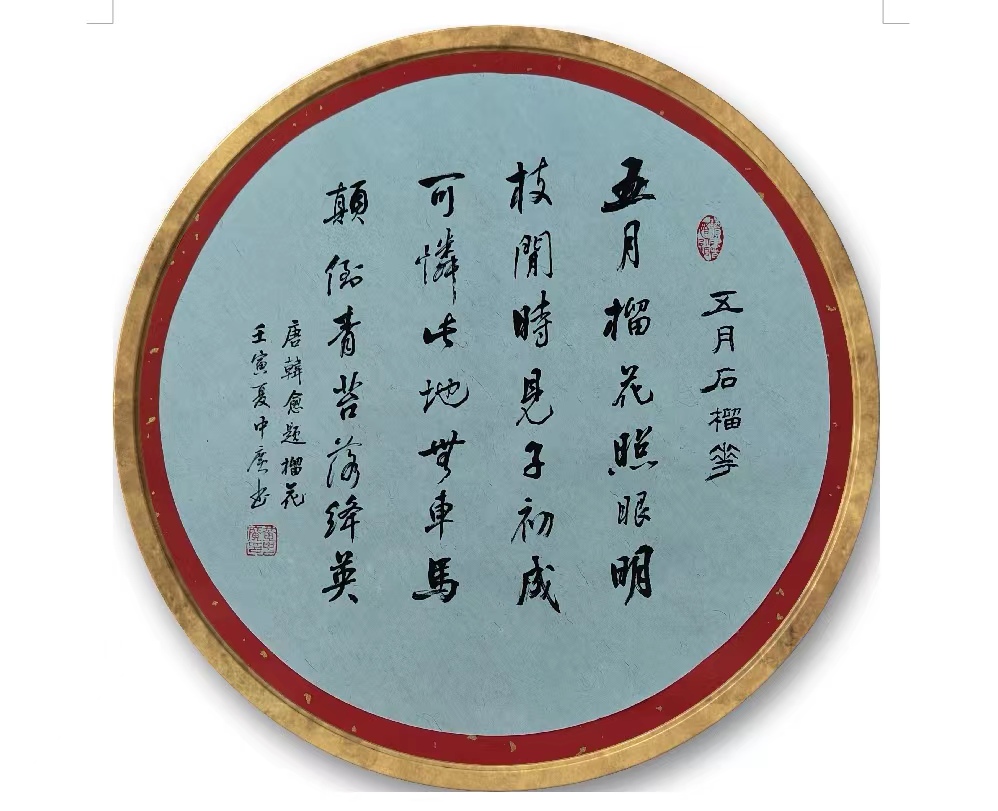 五月石榴花
五月榴花照眼明
枝間時見子初成
可憐此地無車馬
顛倒青苔落絳英
唐韓愈題榴花
壬寅夏中广书